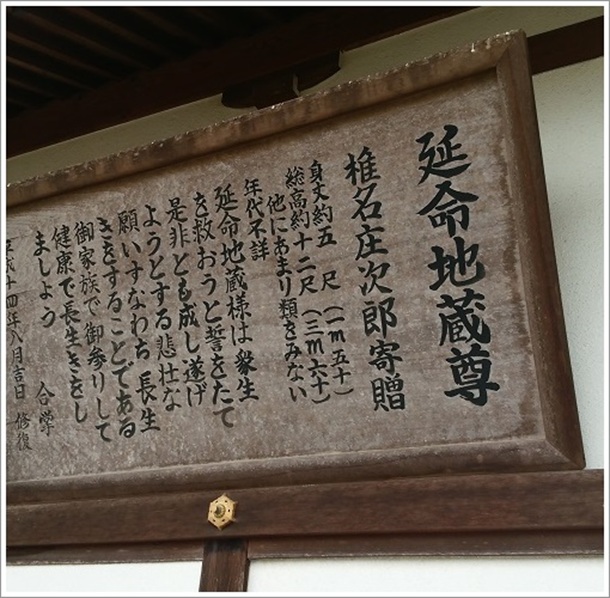 延命地蔵尊
椎名庄次郎寄贈
身丈約五　尺　（一m五十）
総高約十二尺（三m六十）
他にあまり類をみない
年代不詳
延命地蔵様は衆生
を救おうと誓をたて
是非とも成し遂げ
ようとする悲壮な
願いすなわち長生
きをすることである
御家族で御参りして
健康で長生きをし
ましょう　　合掌
平成十四年八月吉日　修復